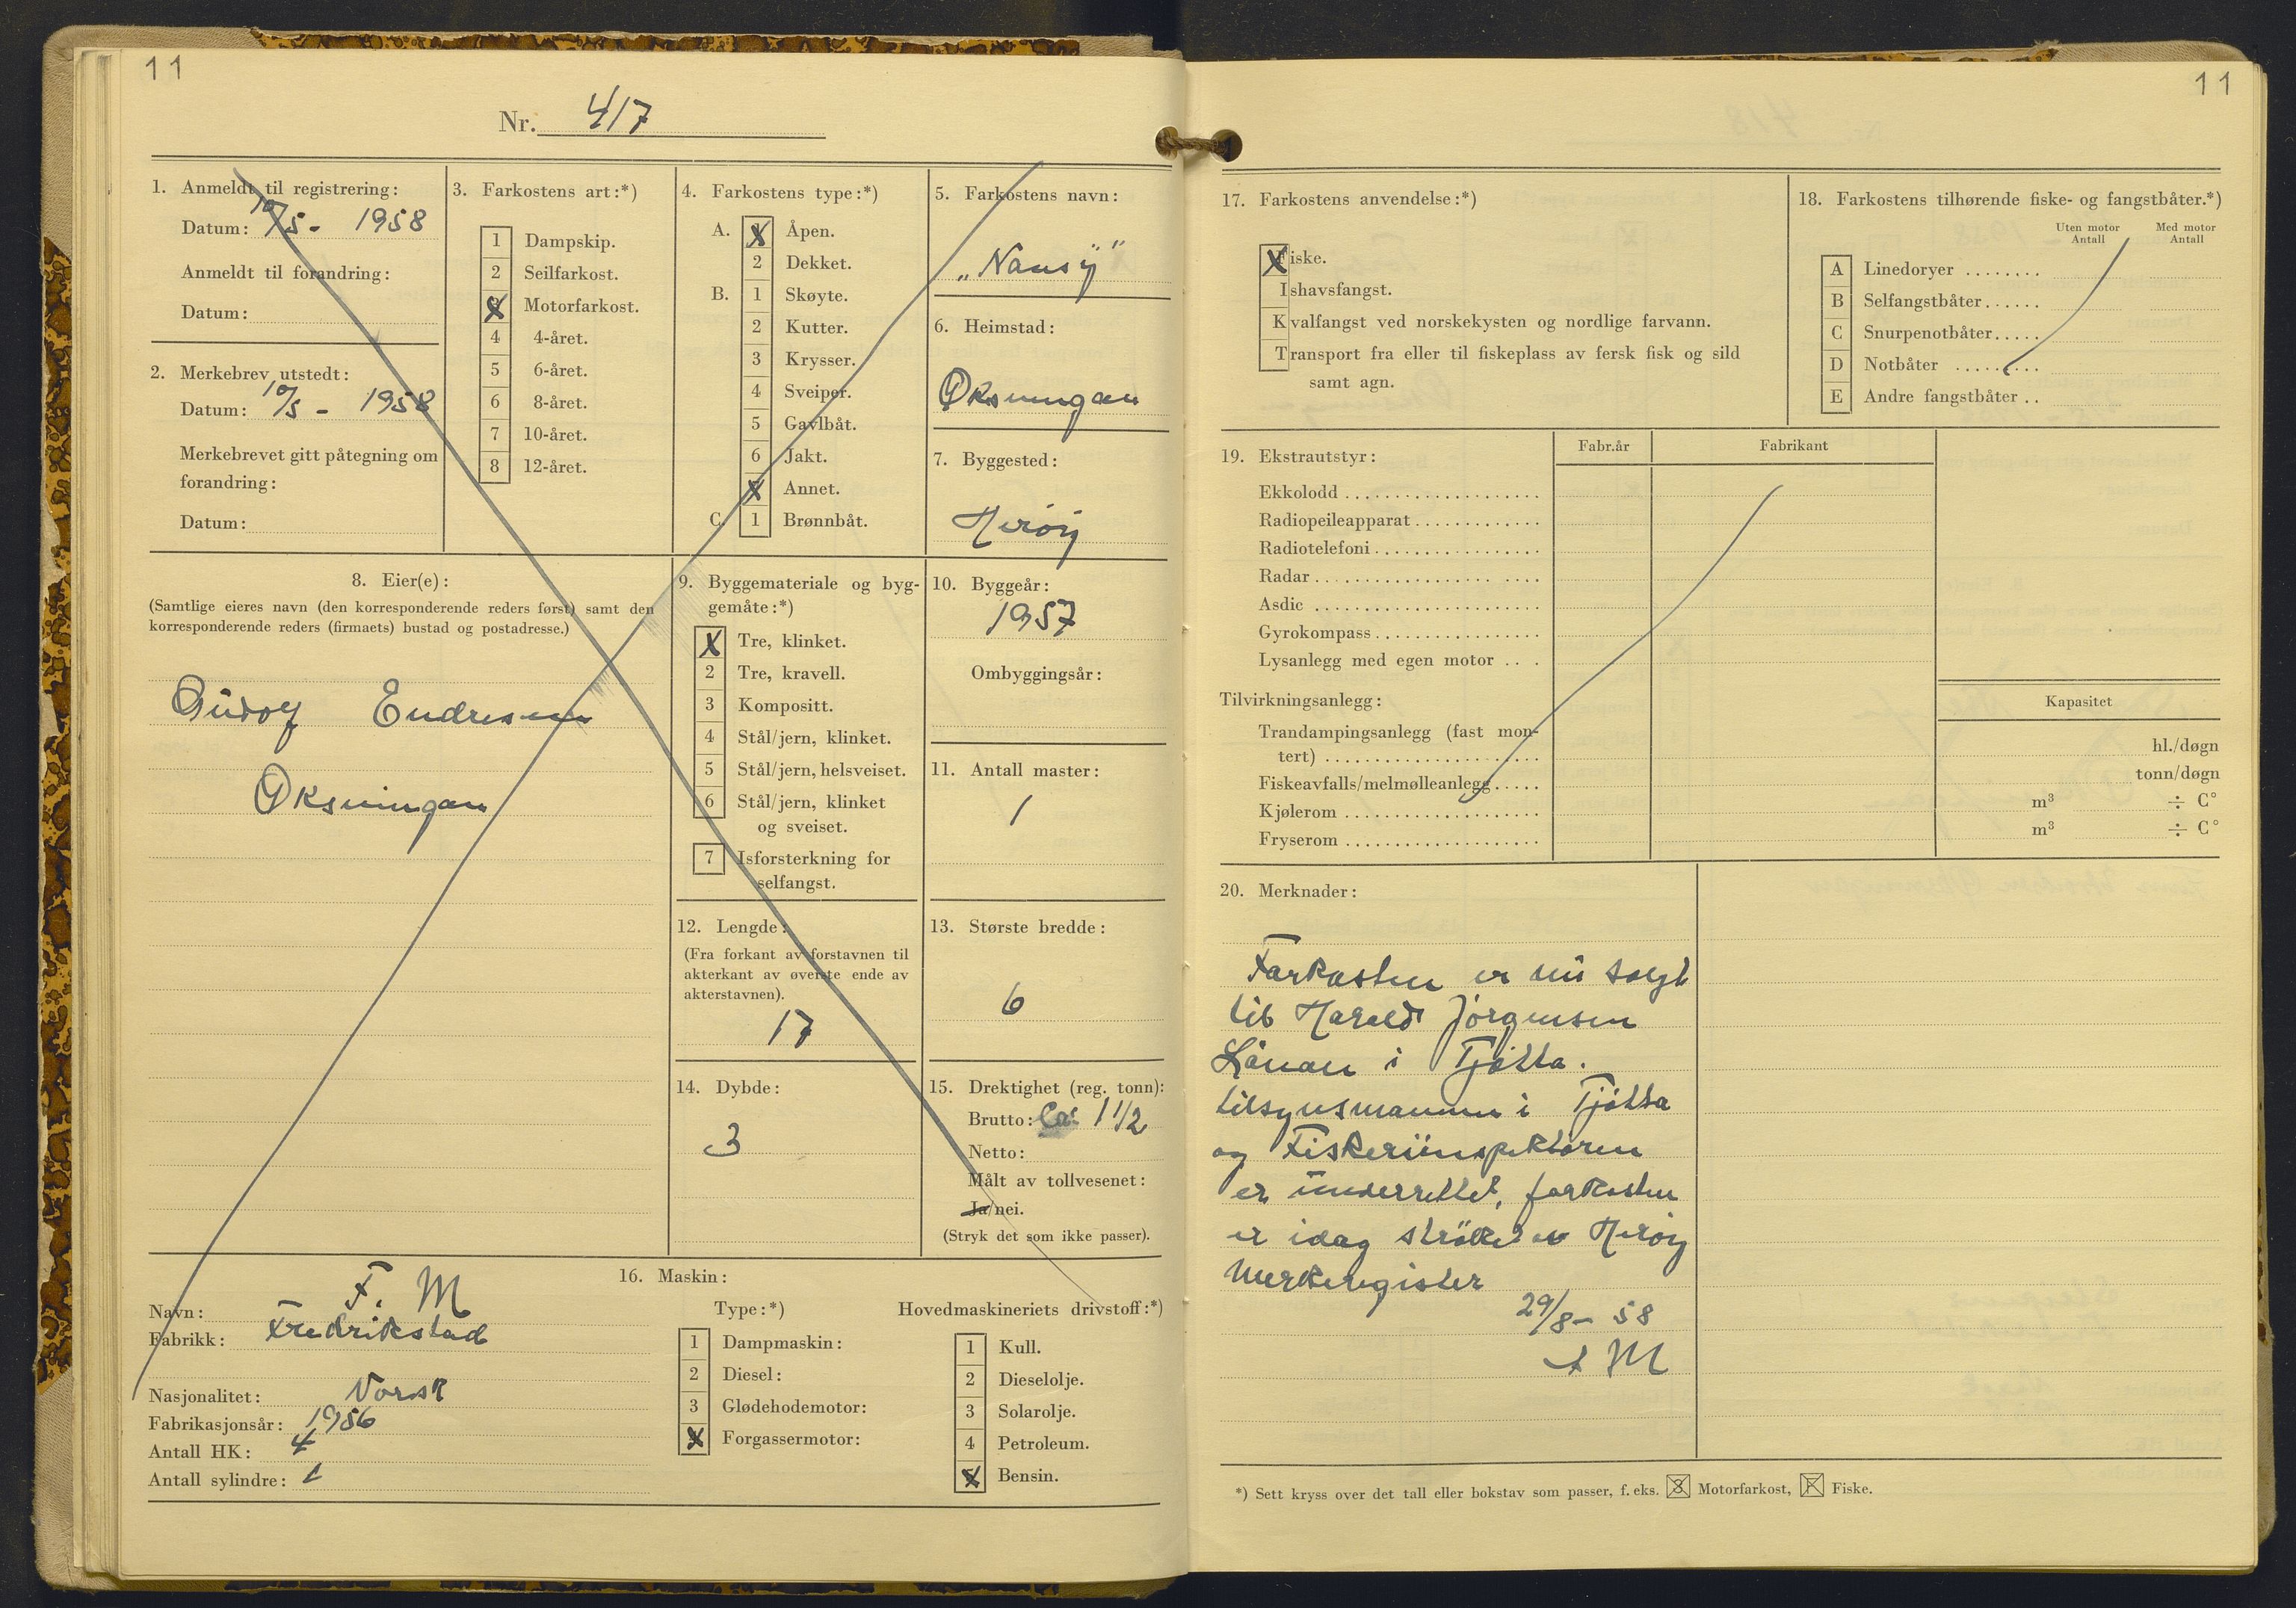 11
Nr. 417
1. Anmeldt til registrering:
Datum: 10/5 - 1958
Anmeldt til forandring:
Datum:
2. Merkebrev utstedt:
Datum: 10/5 - 1958
Merkebrevet gitt påtegning om
forandring:
Datum:
3. Farkostens art:*)
1 Dampskip.
2 Seilfarkost.
X Motorfarkost.
4 4-året.
5 6-året.
6 8-året.
7 10-året.
8 12-året.
4. Farkostens type:*)
A. X Åpen.
2 Dekket.
B. 1 Skøyte.
2 Kutter.
3 Krysser.
4 Sveiper.
5 Gavlbåt.
6 Jakt.
X Annet.
C. 1 Brønnbåt.
5. Farkostens navn:
„Nansy"
6. Heimstad:
Øksningan
7. Byggested:
Herøy
8. Eier(e):
(Samtlige eieres navn (den korresponderende reders først) samt den
korresponderende reders (firmaets) bustad og postadresse.)
Endresen
Øksningan
9. Byggemateriale og byg-
gemåte:*)
X Tre, klinket.
2 Tre, kravell.
3 Kompositt.
4 Stål/jern, klinket.
5 Stål/jern, helsveiset.
6 Stål/jern, klinket
og sveiset.
7 Isforsterkning for
selfangst.
10. Byggeår:
1957
Ombyggingsår:
11. Antall master:
1
12. Lengde:
(Fra forkant av forstavnen til
akterkant av øverste ende av
akterstavnen).
17
13. Største bredde:
6
14. Dybde:
3
15. Drektighet (reg. tonn):
Brutto: Ca: 1 1/2
Netto:
Målt av tollvesenet:
Ja/nei.
(Stryk det som ikke passer).
16. Maskin:
Navn: F. M
Fabrikk: Fredrikstad
Nasjonalitet: Norsk
Fabrikasjonsår: 1956
Antall HK: 4
Antall sylindre: 1
Type:*)
1 Dampmaskin:
2 Diesel:
3 Glødehodemotor:
X Forgassermotor:
Hovedmaskineriets drivstoff:*)
1 Kull.
2 Dieselolje.
3 Solarolje.
4 Petroleum.
X Bensin.
11
17. Farkostens anvendelse:*)
Fiske.
Ishavsfangst.
Kvalfangst ved norskekysten og nordlige farvann.
Transport fra eller til fiskeplass av fersk fisk og sild
samt agn.
18. Farkostens tilhørende fiske- og fangstbåter.*)
Uten motor Med motor
Antall Antall
A Linedoryer ........
B Selfangstbåter......
C Snurpenotbåter.....
D Notbåter ........
E Andre fangstbåter ..
19. Ekstrautstyr:
Fabr.år Fabrikant
Ekkolodd
Radiopeileapparat
Radiotelefoni
Radar
Asdic
Gyrokompass
Lysanlegg med egen motor
Tilvirkningsanlegg:
Kapasitet
Trandampingsanlegg (fast mon-
tert) hl./døgn
Fiskeavfalls/melmølleanlegg tonn/døgn
Kjølerom m³ ÷ C°
Fryserom m³ ÷ C°
20. Merknader:
Farkosten er nu solgt
til Harald Jørgensen
Lånan i Tjøtta.
tilsynsmannen i Tjøtta
og Fiskeriinspektøren
er underrettet, farkosten
er idag strøket av Herøy
Merkeregister
29/8 - 58
M
*) Sett kryss over det tall eller bokstav som passer, f. eks. 3 Motorfarkost, F Fiske.